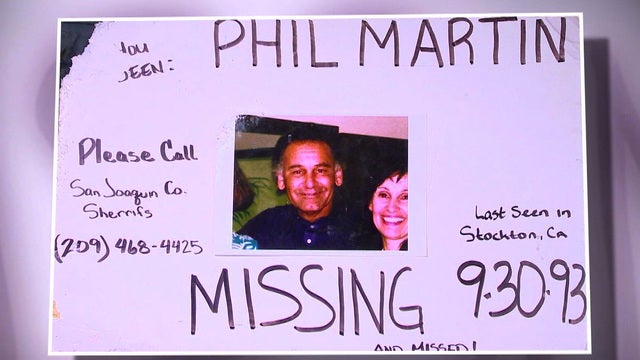 PHIL MARTIN
YOU
SEEN:
Please Call
San Joaquin Co.
Sherrifs
(209) 468-4425
Last Seen in
Stockton, Ca
9.30.93
MISSING
AND MISSED!